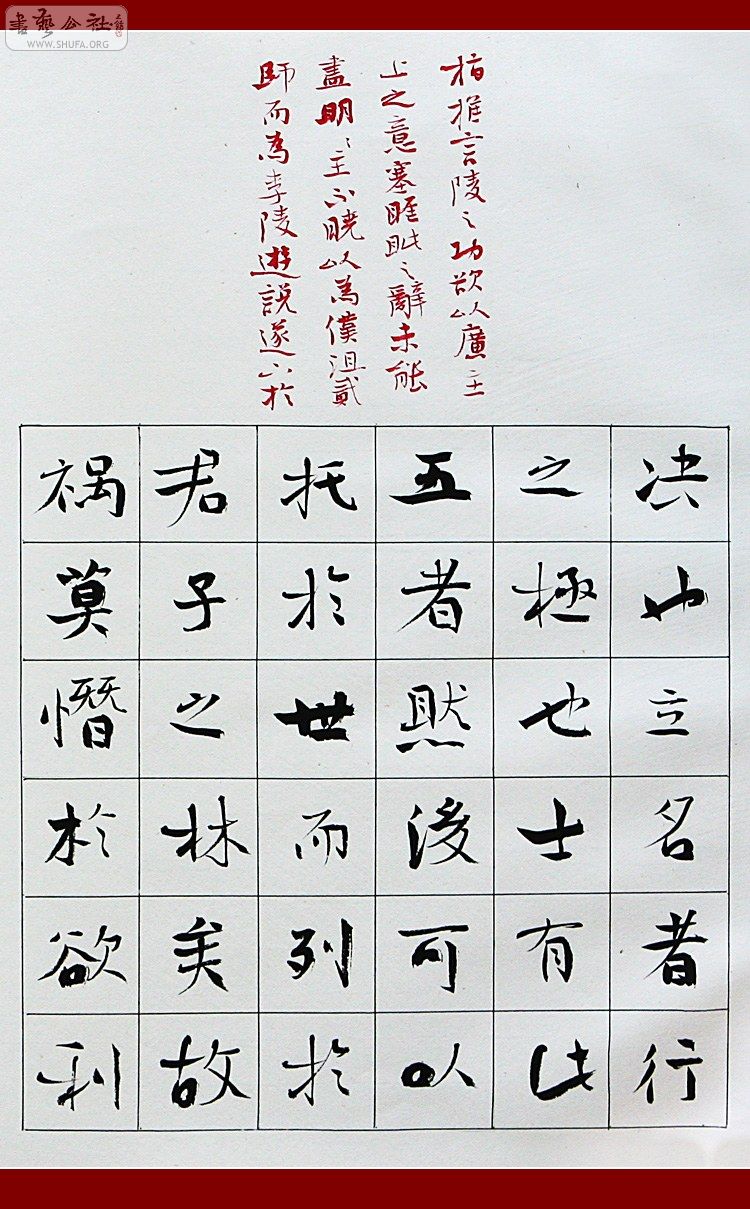 書藝公社
WWW.SHUFA.ORG
指推言陵之功欲以廣主
上之意塞睚眥之辭未能
盡明〻主不曉以為僕沮貳
師而為李陵遊説遂下於
决也立名者行
之極也士有此
五者然後可以
托於世而列於
君子之林矣故
祸莫憯於欲利